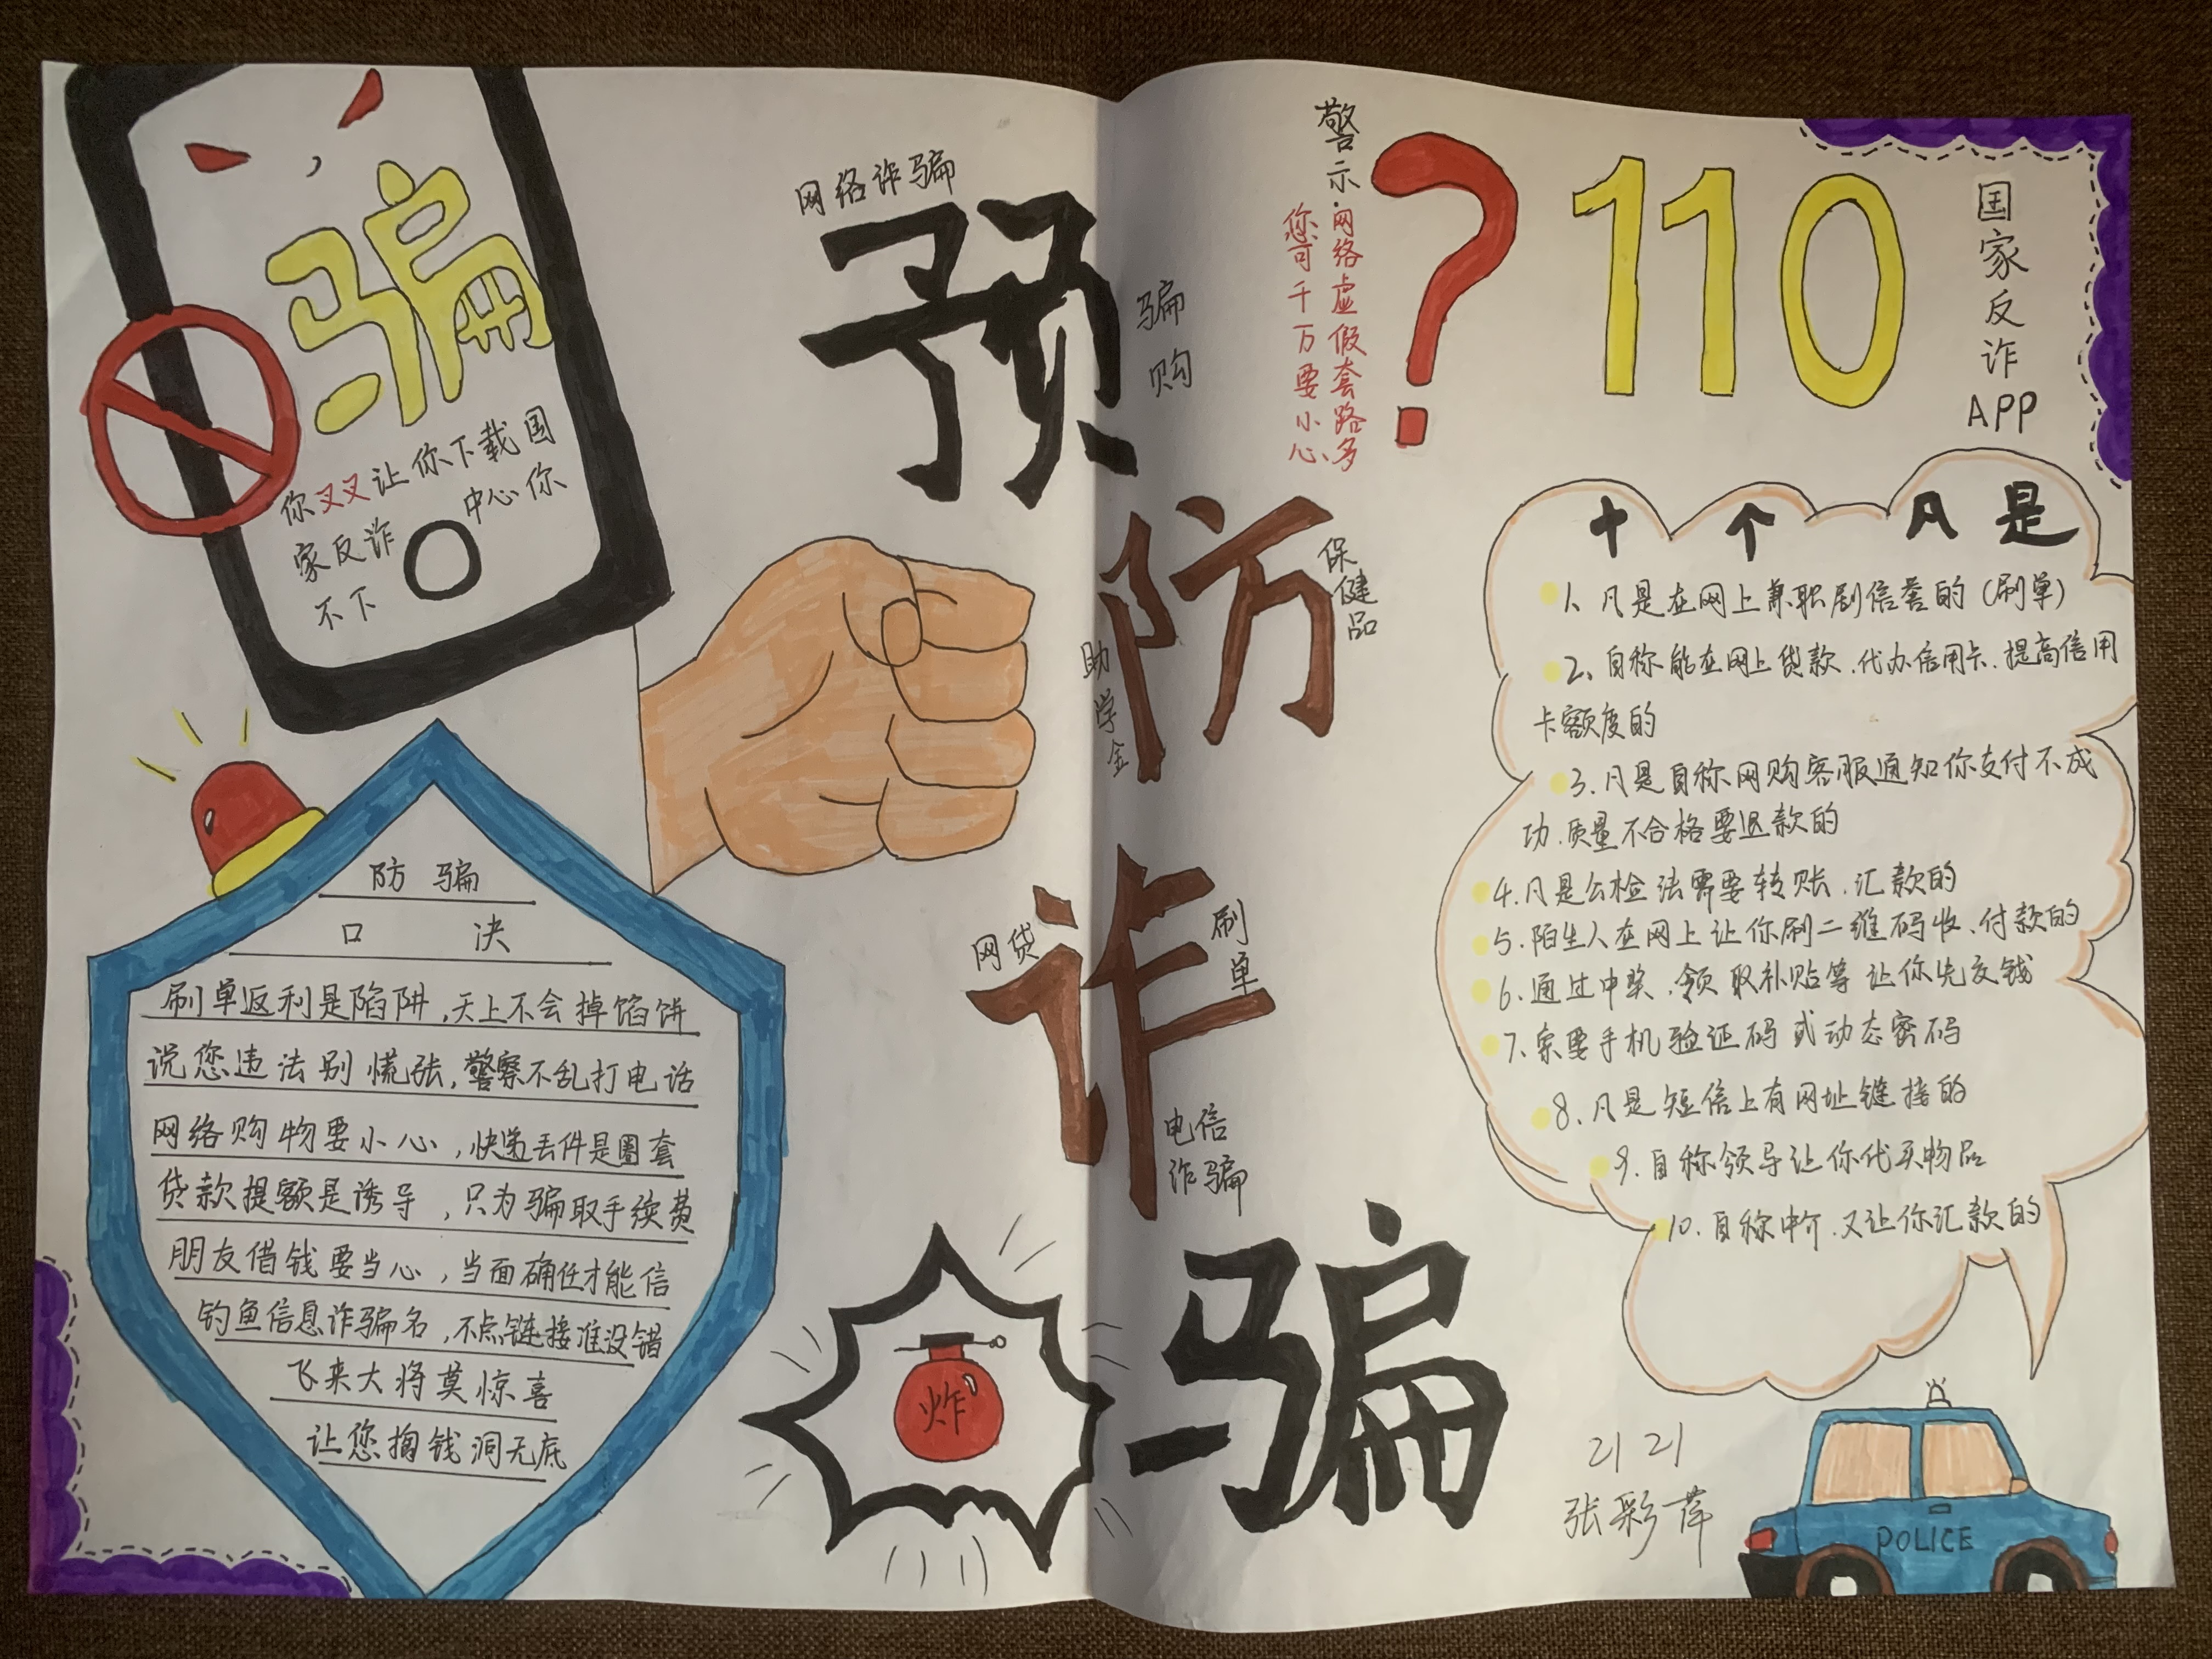 骗
你叉叉让你下载国
家反诈中心你
不下
防骗
口决
刷单返利是陷阱,天上不会掉馅饼
说您违法别慌张,警察不乱打电话
网络购物要小心,快递丢件是圈套
贷款提额是诱导,只为骗取手续费
朋友借钱要当心,当面确任才能信
钓鱼信息诈骗名,不点链接准没错
飞来大将莫惊喜
让您掏钱洞无底
网络诈骗
预
骗购
防
保健品
助学金
诈
网贷
刷单
电信
诈骗
骗
炸
警示.网络虚假套路多
您可千万要小心
?
110
国家反诈APP
十个凡是
1、凡是在网上兼职刷信誉的(刷单)
2、自称能在网上贷款.代办信用卡.提高信用
卡额度的
3.凡是自称网购客服通知你支付不成
功.质量不合格要退款的
4.凡是公检法需要转账.汇款的
5.陌生人在网上让你刷二维码收、付款的
6.通过中奖.领取补贴等让你先交钱
7.索要手机验证码或动态密码
8.凡是短信上有网址链接的
9.自称领导让你代买物品
10.自称中介.又让你汇款的
2121
张彩萍
POLICE